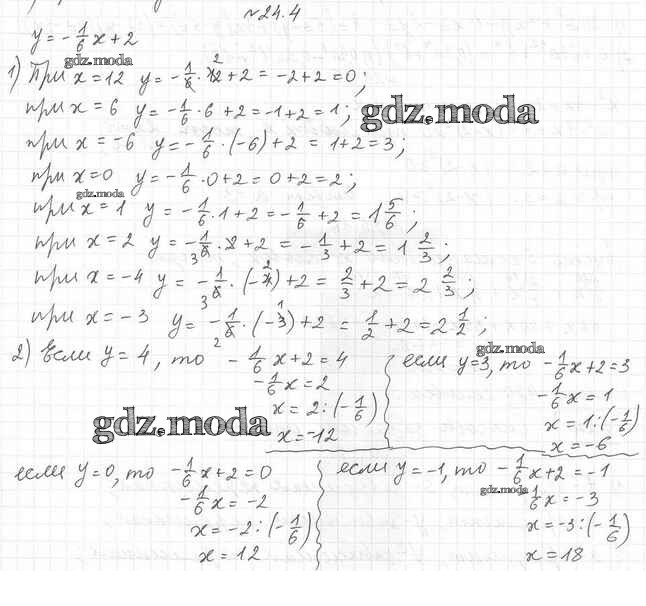 №24.4
y = -1/6 x + 2
gdz.moda
1) При x = 12 y = -1/6 · 12 + 2 = -2 + 2 = 0;
при x = 6 y = -1/6 · 6 + 2 = -1 + 2 = 1;
gdz.moda
при x = -6 y = -1/6 · (-6) + 2 = 1 + 2 = 3;
при x = 0 y = -1/6 · 0 + 2 = 0 + 2 = 2;
gdz.moda
при x = 1 y = -1/6 · 1 + 2 = -1/6 + 2 = 1 5/6;
при x = 2 y = -1/6 · 2 + 2 = -1/3 + 2 = 1 2/3;
при x = -4 y = -1/6 · (-4) + 2 = 2/3 + 2 = 2 2/3;
при x = -3 y = -1/6 · (-3) + 2 = 1/2 + 2 = 2 1/2;
2) Если y = 4, то -1/6 x + 2 = 4
-1/6 x = 2
x = 2 : (-1/6)
x = -12
gdz.moda
gdz.moda
если y = 3, то -1/6 x + 2 = 3
-1/6 x = 1
x = 1 : (-1/6)
x = -6
если y = 0, то -1/6 x + 2 = 0
-1/6 x = -2
x = -2 : (-1/6)
x = 12
если y = -1, то -1/6 x + 2 = -1
gdz.moda
1/6 x = -3
x = -3 : (-1/6)
x = 18